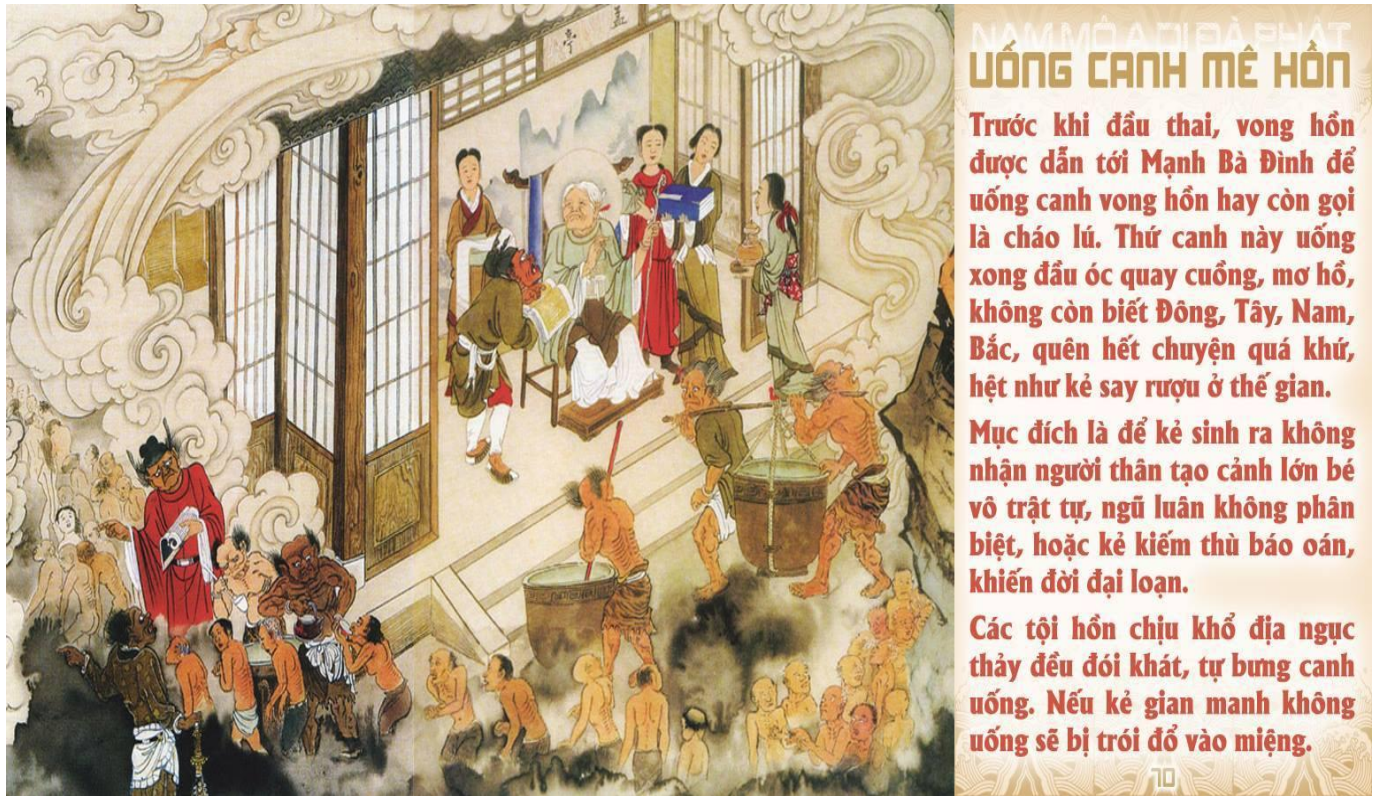 孟
亭
NAM MÔ A DI ĐÀ PHẬT
UỐNG CANH MÊ HỒN
Trước khi đầu thai, vong hồn
được dẫn tới Mạnh Bà Đình để
uống canh vong hồn hay còn gọi
là cháo lú. Thứ canh này uống
xong đầu óc quay cuồng, mơ hồ,
không còn biết Đông, Tây, Nam,
Bắc, quên hết chuyện quá khứ,
hệt như kẻ say rượu ở thế gian.
Mục đích là để kẻ sinh ra không
nhận người thân tạo cảnh lớn bé
vô trật tự, ngũ luân không phân
biệt, hoặc kẻ kiếm thù báo oán,
khiến đời đại loạn.
Các tội hồn chịu khổ địa ngục
thảy đều đói khát, tự bưng canh
uống. Nếu kẻ gian manh không
uống sẽ bị trói đổ vào miệng.
10